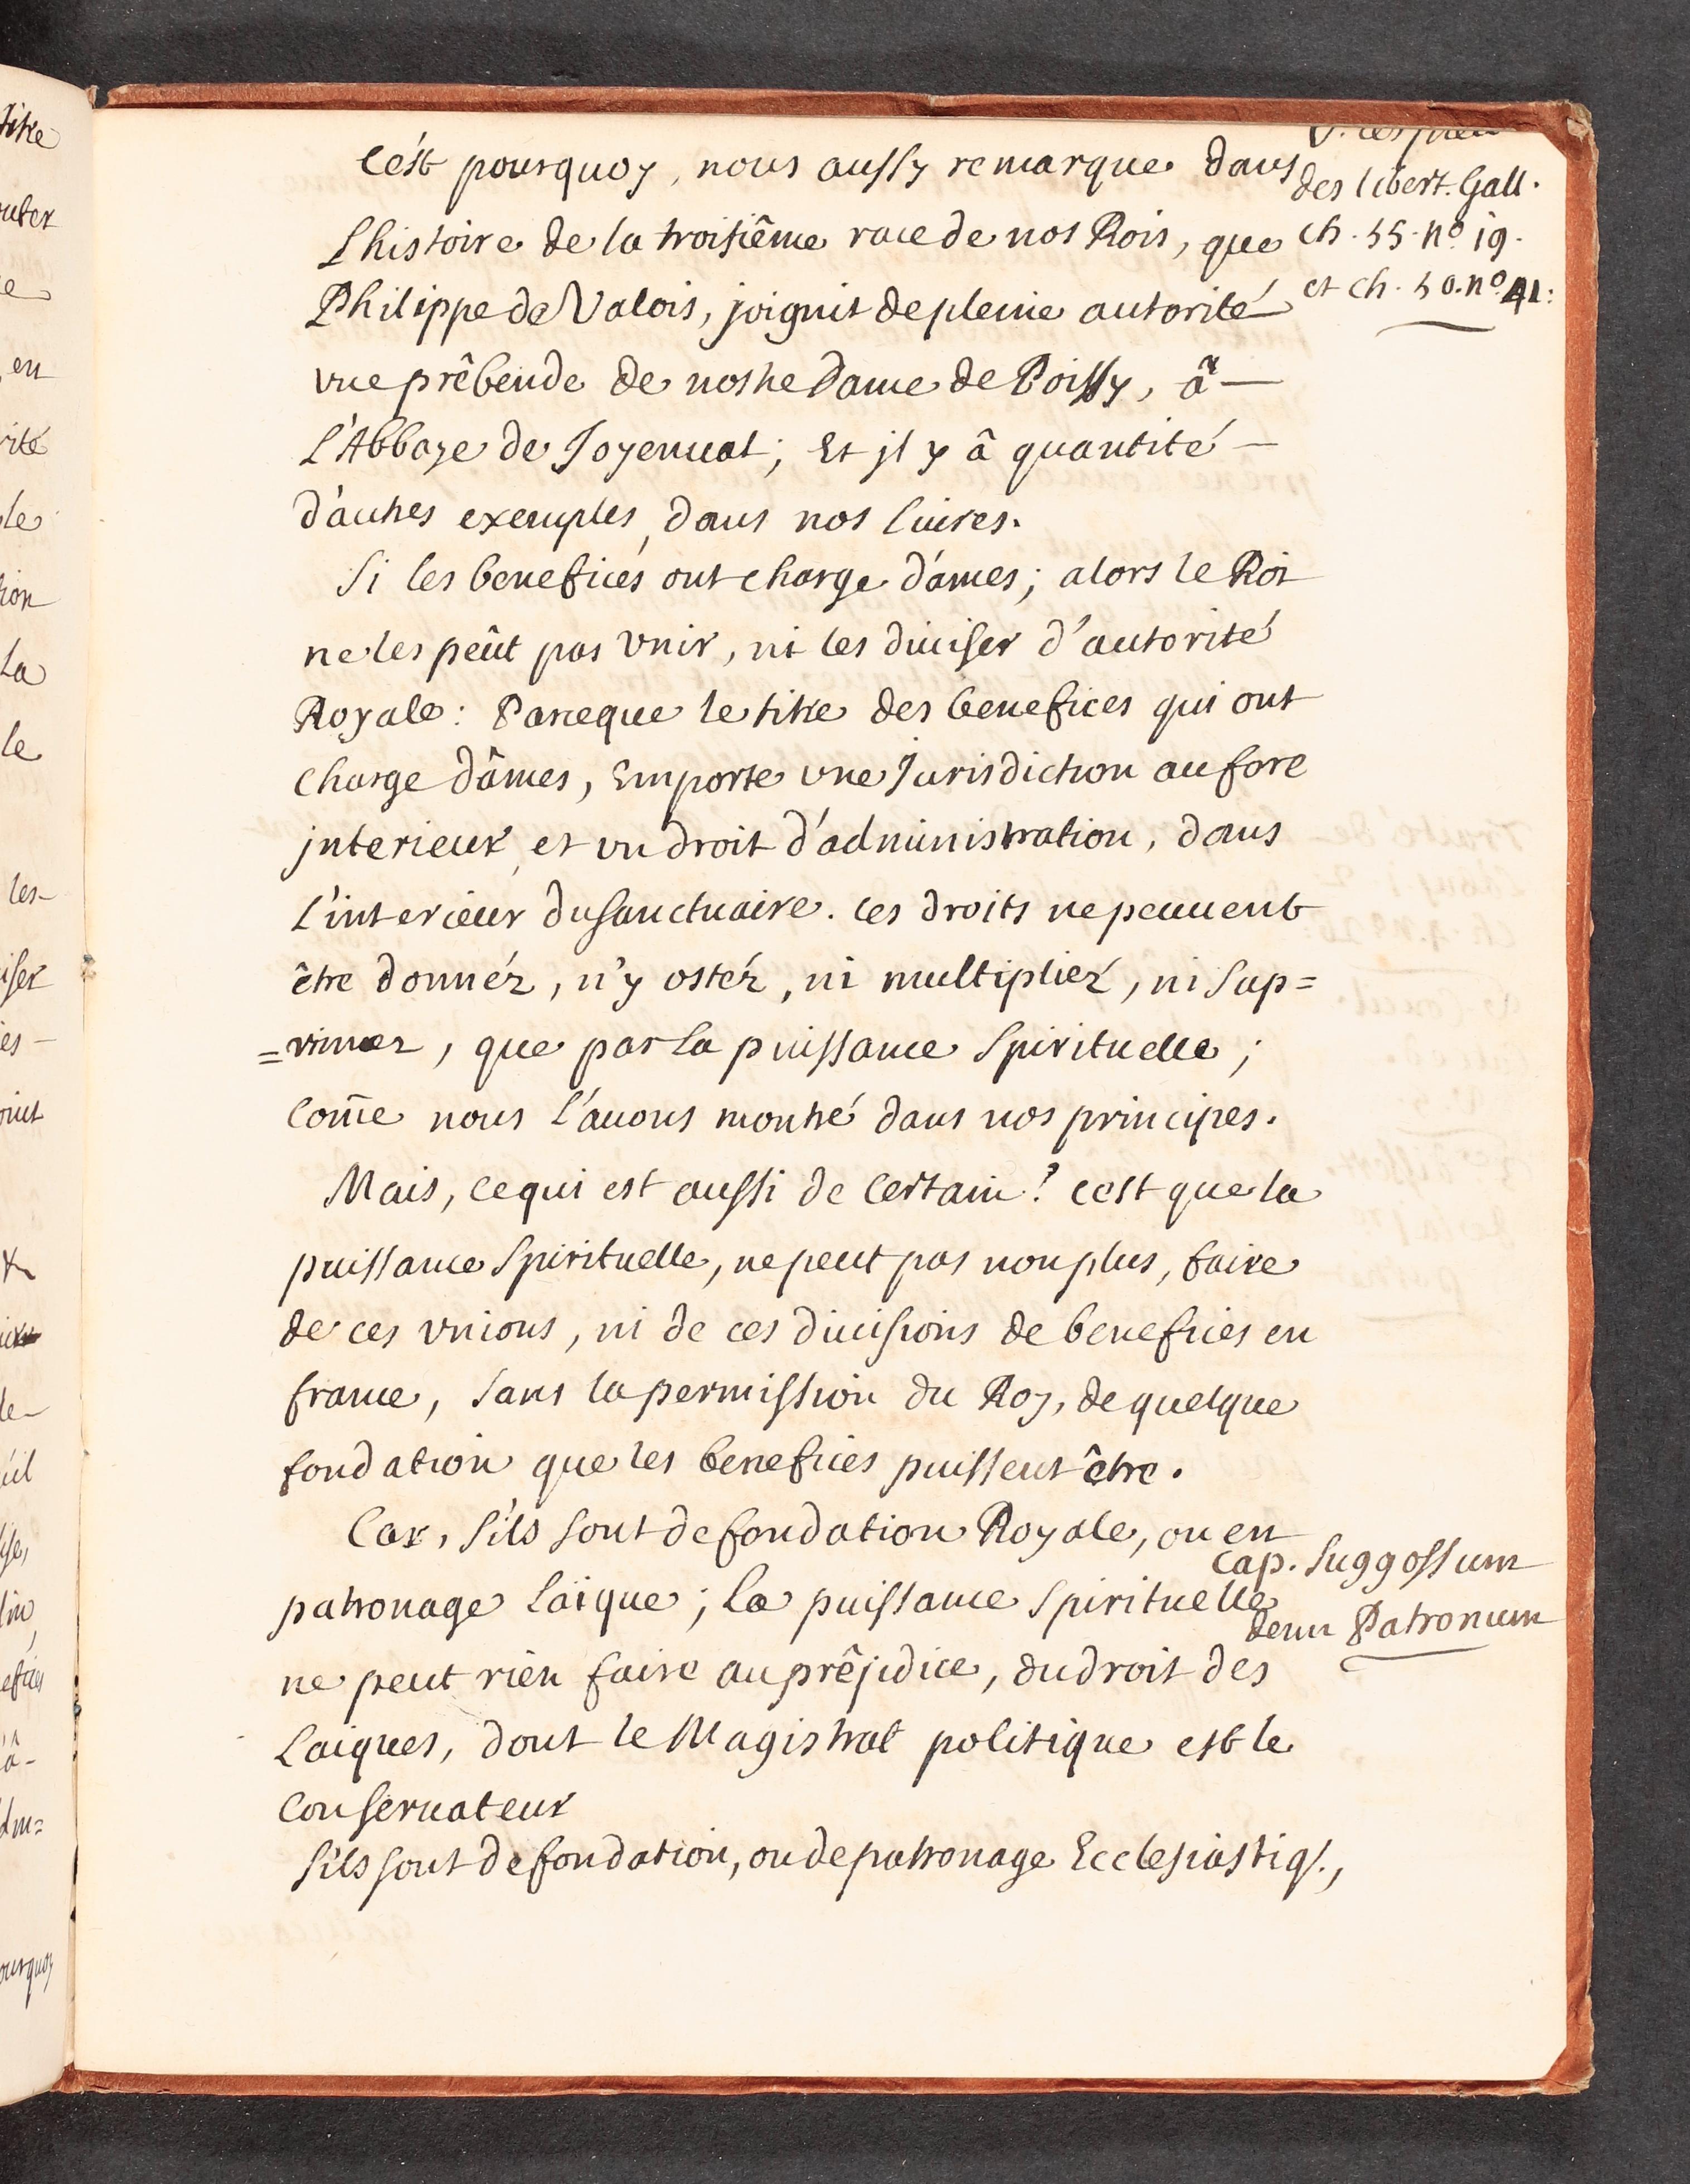 C'est pourquoy, nous aussy remarque dans
L'histoire de la troisiême race de nos Rois, que
Philippe de Valois, joignit de pleine autorité
vne prêbende de nostre Dame de Poissy, â
L'Abbaye de Joyenual; Et jl y â quantité
d'autres exemples, dans nos Liures.
Si les benefices ont charge d'ames; alors le Roi
ne les peût pas vnir, ni les diuiser d'autorité
Royale: Parceque le titre des benefices qui ont
charge d'âmes, Emporte vne Jurisdiction au fore
jnterieur, et vn droit d'administration, dans
L'interieur du Sanctuaire. Ces droits ne peuuent
être donnéz, n'y ostéz, ni multipliez, ni Sup=
=rimez, que par La puissance Spirituelle;
Com̃e nous l'auons montré dans nos principes.
Mais, ce qui est aussi de Certain? cest que la
puissance Spirituelle, ne peut pas non plus, faire
de ces vnions, ni de ces diuisions de benefices en
france, Sans la permission du Roy, de quelque
fondation que les benefices puissent être.
Car, S'ils sont de fondation Royale, ou en
patronage Laïque; La puissance Spirituelle
ne peut rien faire au prêjudice, du droit des
Laiques, dont le Magistrat politique est le
Conseruateur
S'ils sont de fondation, ou de patronage Ecclesiastiq.,
des libert. Gall.
ch. 35. nº 19.
et ch. 50. nº 41.
Cap. Suggossum
Patronum
tike
en
rité
le
La
le
les-
oint
ourquoy